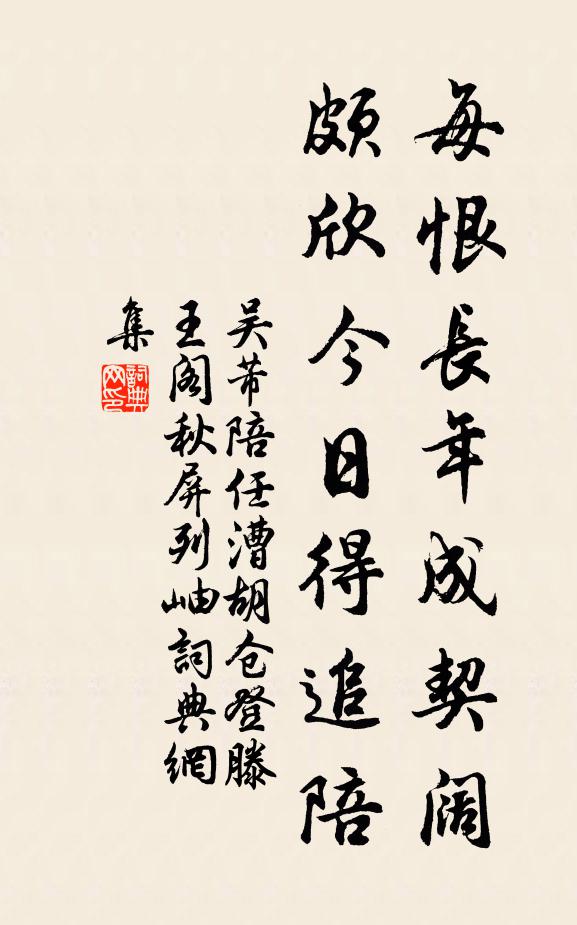 每恨長年成契阔
頗欣今日得追陪
吴芾陪任漕胡仓登滕
王阁秋屏列岫詞典網
集
詞典
网印